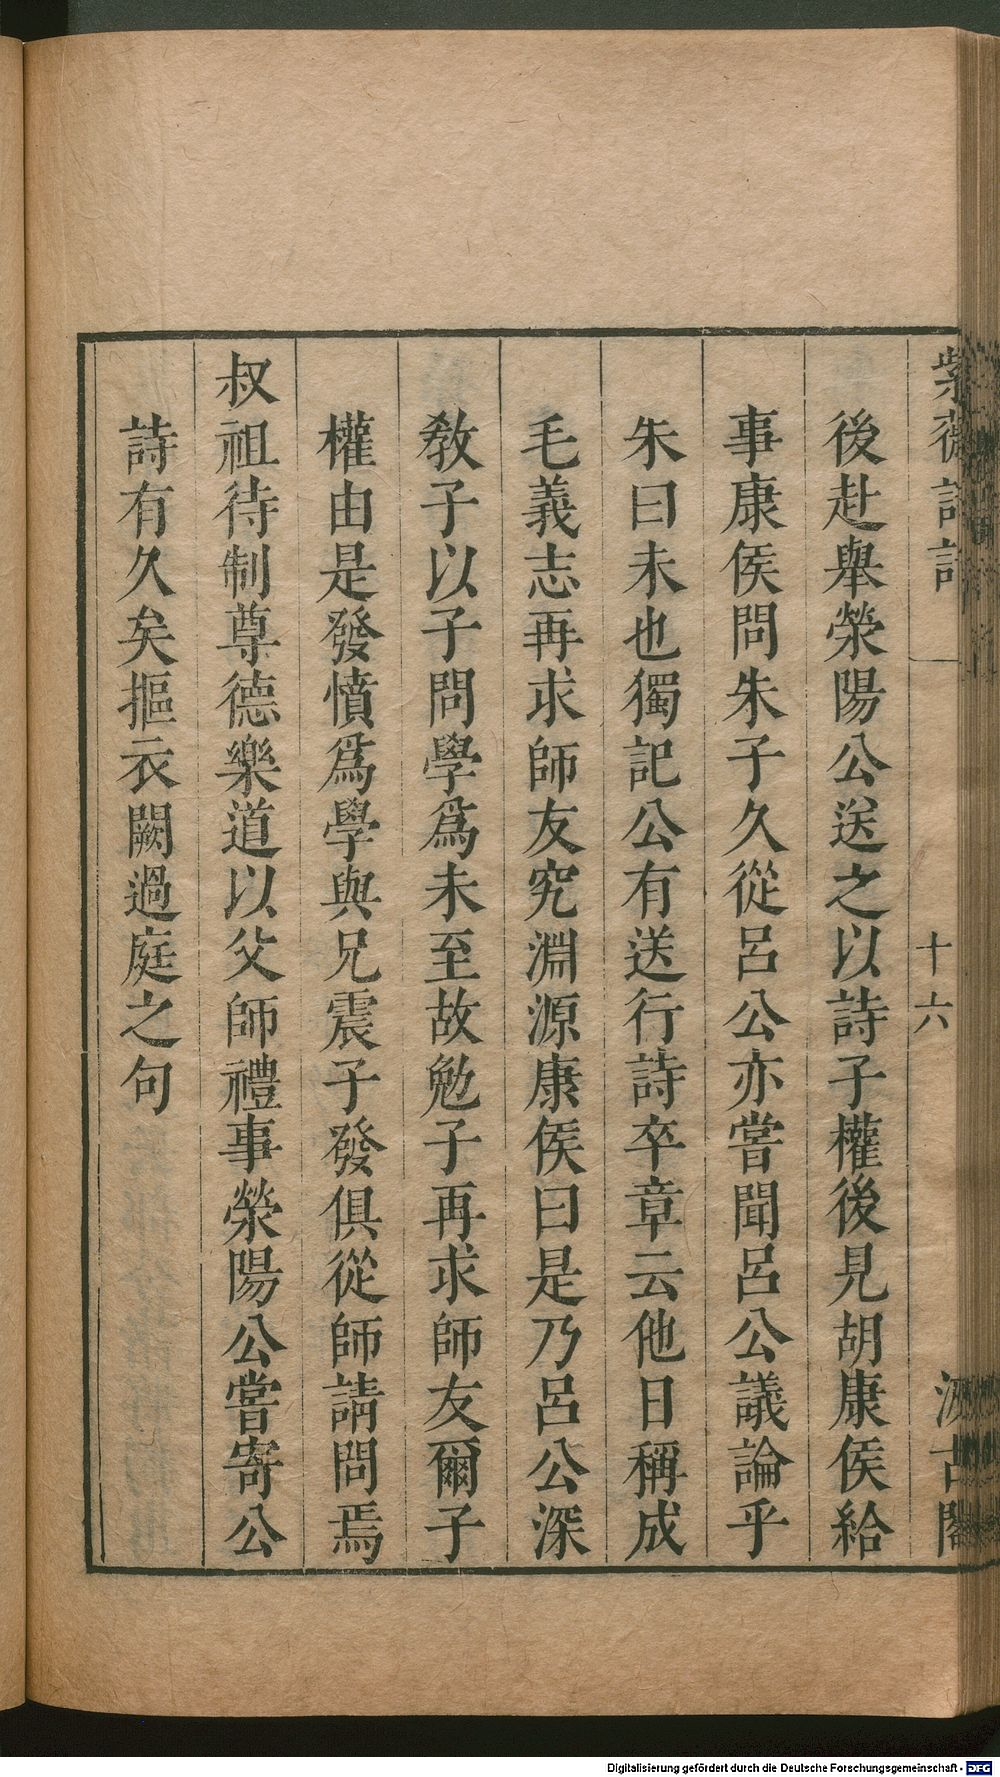 紫薇詩話
十六
汲古閣
後赴舉滎陽公送之以詩子權後見胡康侯給
事康侯問朱子久從呂公亦嘗聞呂公議論乎
朱曰未也獨記公有送行詩卒章云他日稱成
毛義志再求師友究淵源康侯曰是乃呂公深
敎子以子問學爲未至故勉子再求師友爾子
權由是發憤爲學與兄震子發俱從師請問焉
叔祖待制尊德樂道以父師禮事滎陽公嘗寄公
詩有久矣摳衣闕過庭之句
Digitalisierung gefördert durch die Deutsche Forschungsgemeinschaft - DFG